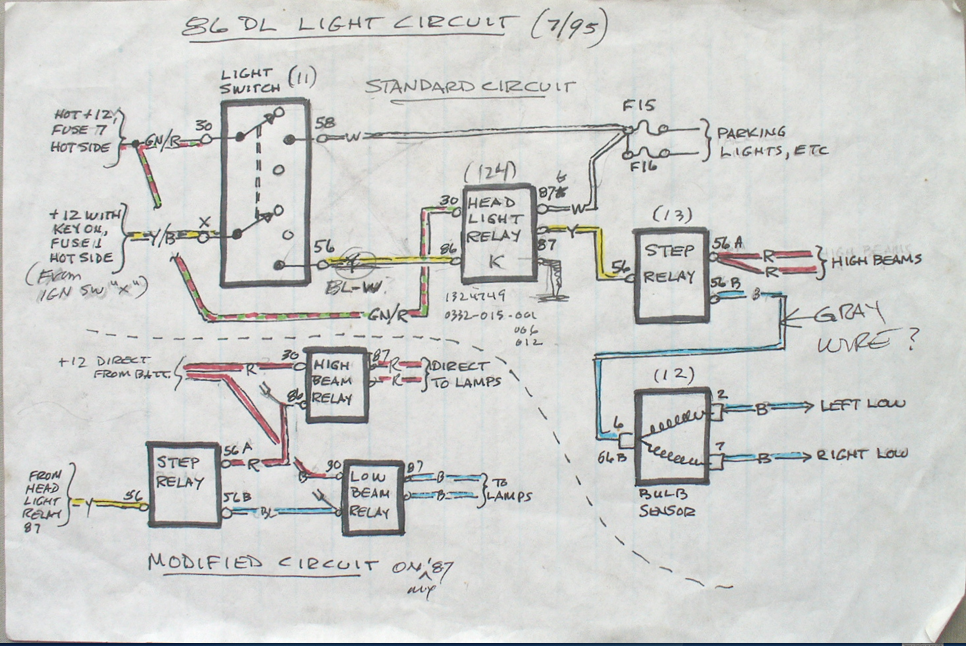 86 DL LIGHT CIRCUIT (7/95)
LIGHT
SWITCH (11)
STANDARD CIRCUIT
HOT +12,
FUSE 7
HOT SIDE
GN/R
30
58
W
F15
F16
PARKING
LIGHTS, ETC
+12 WITH
KEY ON,
FUSE 11
HOT SIDE
(From
IGN SW, "X")
Y/B
X
56
BL-W
GN/R
(124)
HEAD
LIGHT
RELAY
K
30
86
87
W
87
Y
1324749
0332-015-001
006
012
(13)
STEP
RELAY
56
56A
R
R
HIGH BEAMS
HIGH BEAMS
56B
B
GRAY
WIRE?
(12)
6
56B
2
B
LEFT LOW
7
B
RIGHT LOW
BULB
SENSOR
+12 DIRECT
FROM BATT.
R
30
HIGH
BEAM
RELAY
86
87
R
R
DIRECT
TO LAMPS
STEP
RELAY
56A
R
56B
BL
FROM
HEAD
LIGHT
RELAY
87
Y
56
30
LOW
BEAM
RELAY
87
B
B
TO
LAMPS
MODIFIED CIRCUIT ON '87
my